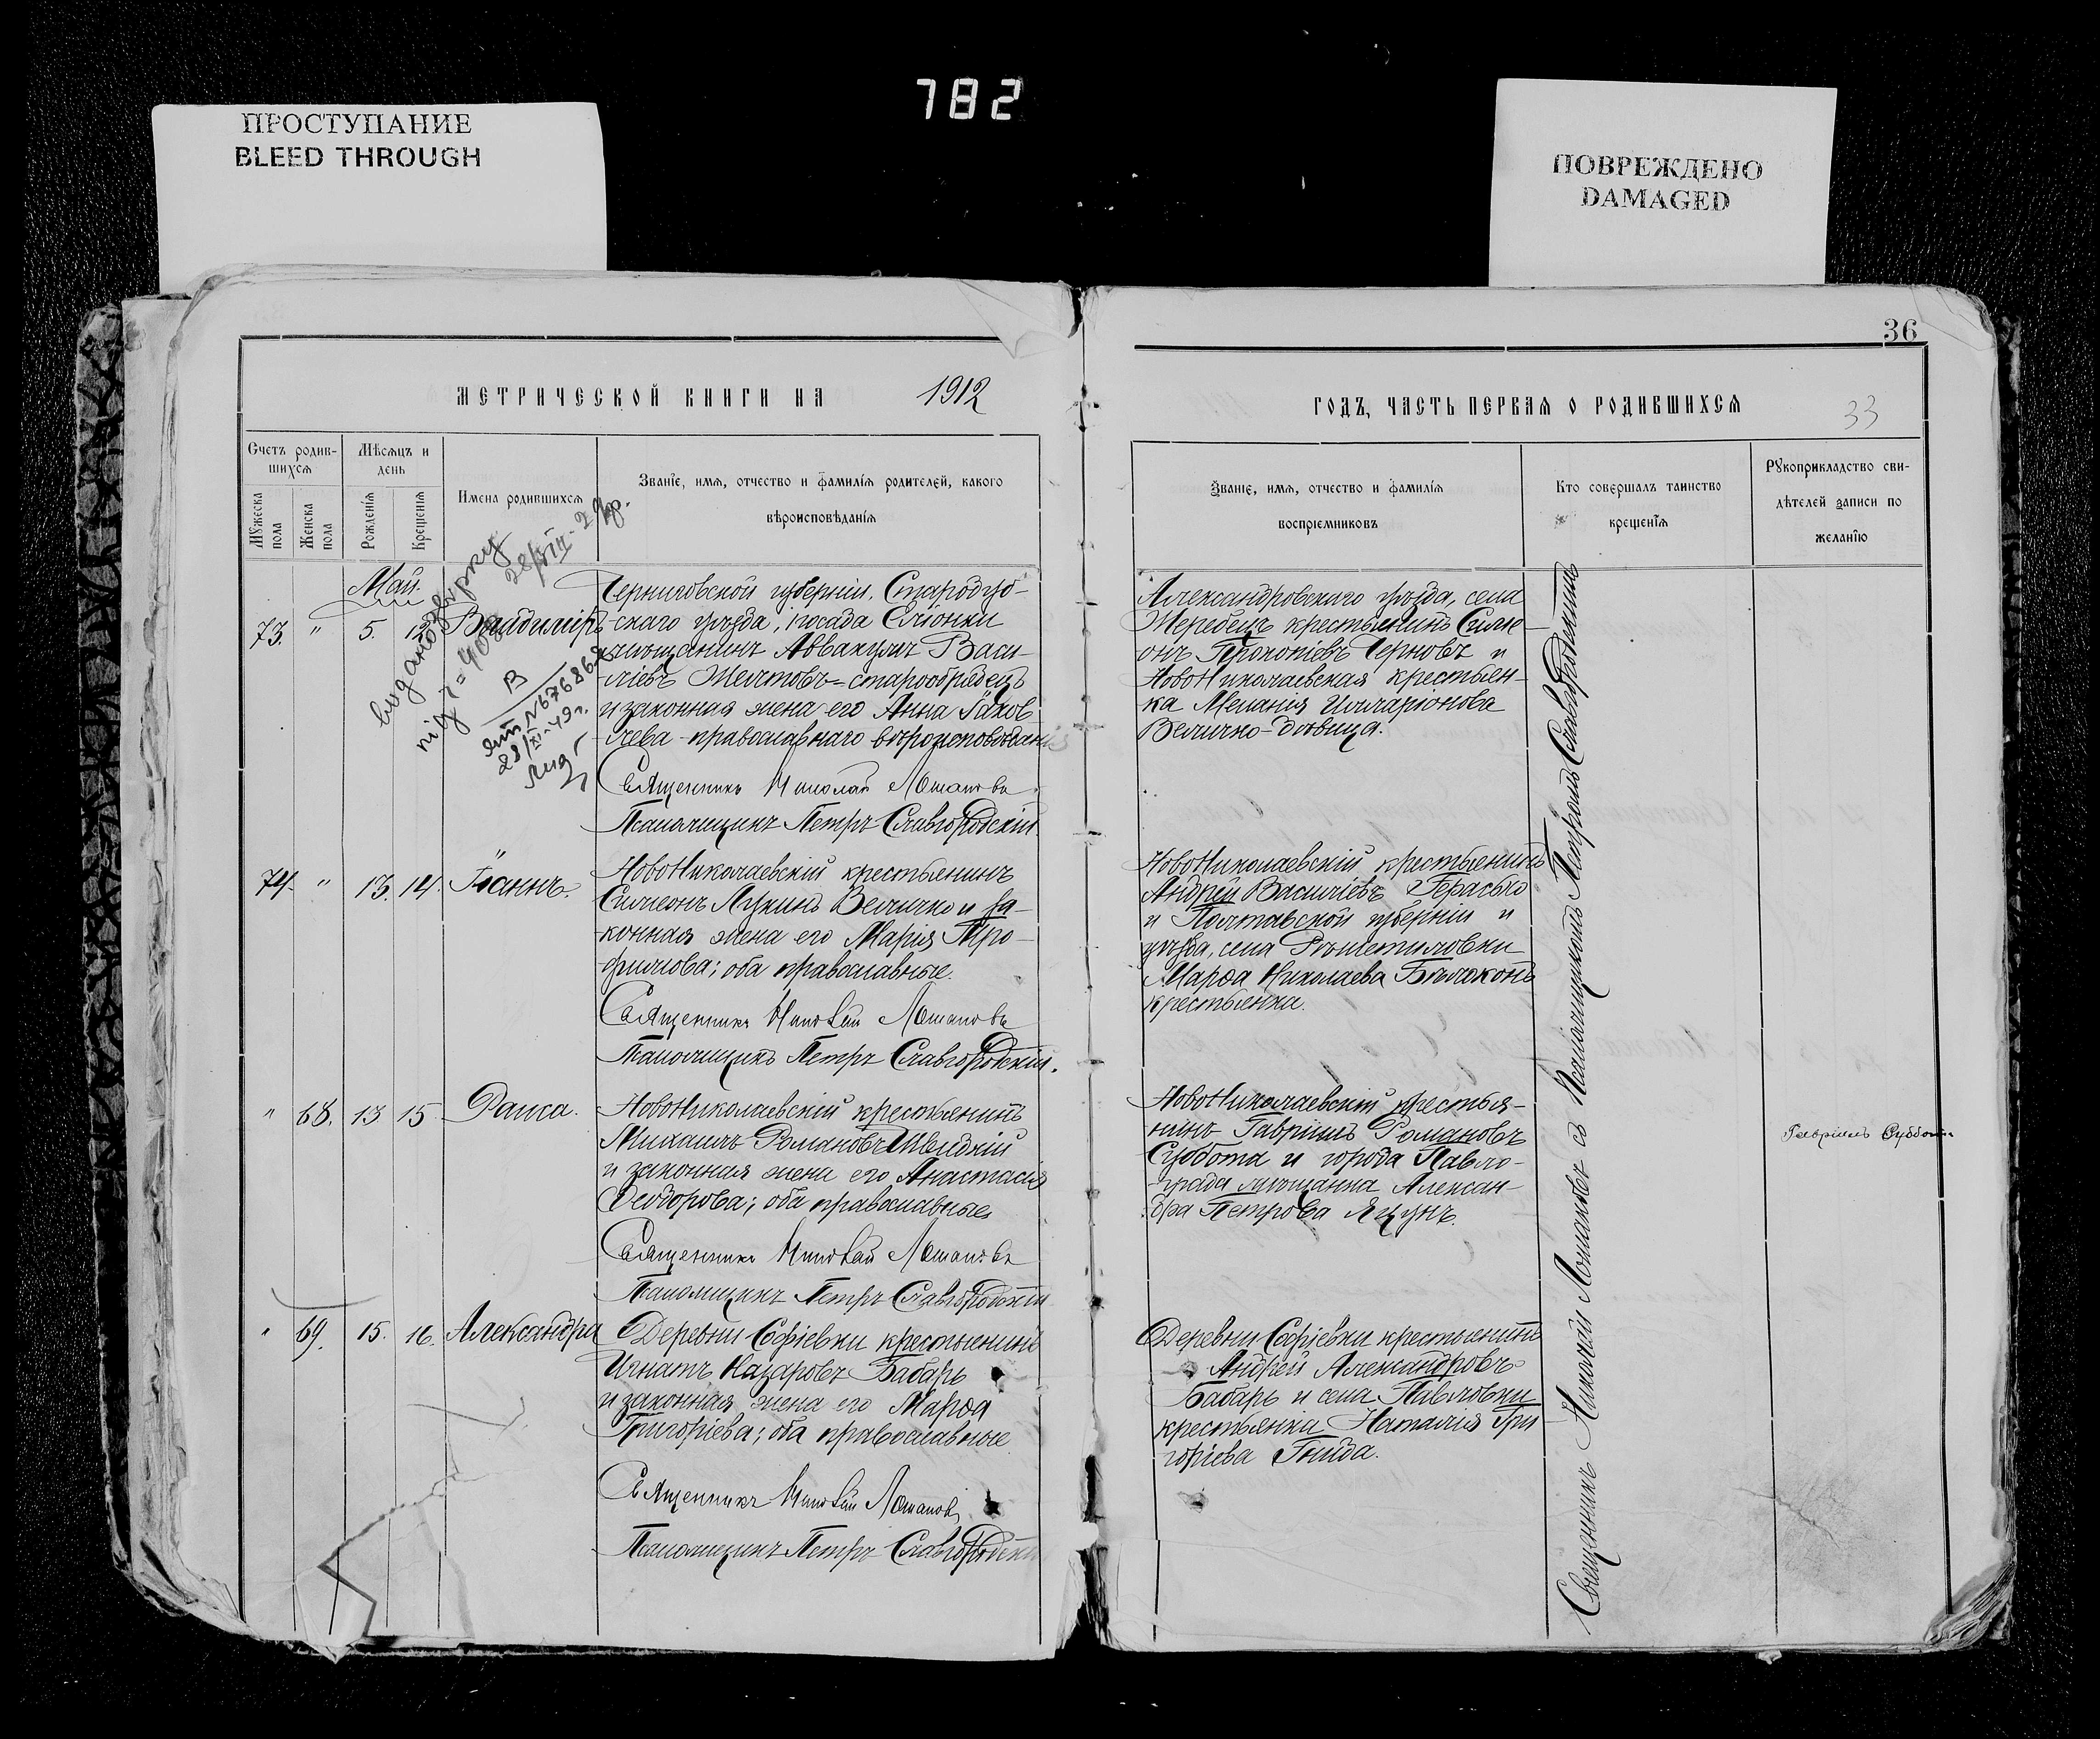 782
ПРОСТУПАНИЕ
BLEED THROUGH
ПОВРЕЖДЕНО
DAMAGED
36
МЕТРИЧЕСКОЙ КНИГИ НА 1912
ГОДЪ, ЧАСТЬ ПЕРВАЯ О РОДИВШИХСЯ
33
Счетъ родив-
шихся
Мужеска пола
Женска пола
Мѣсяцъ и
день
Рожденія
Крещенія
Имена родившихся
Званіе, имя, отчество и фамилія родителей, какого
вѣроисповѣданія
Званіе, имя, отчество и фамилія
воспріемниковъ
Кто совершалъ таинство
крещенія
Рукоприкладство сви-
дѣтелей записи по
желанію
Май.
видано
28/VIII - 29р.
під ч = 408
В
№ 676868
28/XI-49г.
73. " 5. 12 Владиміръ
Черниговской губерніи, Стародуб-
-скаго уѣзда, посада Еліонки
мѣщанинъ Аввакумъ Васи-
ліевъ Желтовъ = старообрядецъ
и законная жена его Анна Іаков
лева - православнаго вѣроисповѣданія
Священникъ Николай Лошаковъ
Псаломщикъ Петръ Славгородскій
Александровскаго уѣзда, села
Жеребецъ крестьянинъ Симе-
онъ Прокопіевъ Черновъ и
НовоНиколаевская крестьян-
ка Меланія Илларіонова
Величко - дѣвица.
74. " 13. 14. Іоаннъ.
НовоНиколаевскій крестьянинъ
Симеонъ Лукинъ Величко и за-
конная жена его Марія Тро-
фимова; оба православные.
Священникъ Николай Лошаковъ
Псаломщикъ Петръ Славгородскій.
НовоНиколаевскій крестьянинъ
Андрей Василіевъ Герасько
и Полтавской губерніи и
уѣзда, села Рѣшетиловки
Марѳа Николаева Бѣлоконь
крестьянка.
" 68. 13 15 Раиса.
НовоНиколаевскій крестьянинъ
Михаилъ Романовъ Швидкій
и законная жена его Анастасія
Ѳеодорова; оба православные
Священникъ Николай Лошаковъ
Псаломщикъ Петръ Славгородскій
НовоНиколаевскій крестья-
нинъ Гавріилъ Романовъ
Суббота и города Павло-
града мѣщанка Алексан-
дра Петрова Яцунъ.
Гавріилъ Суббота
" 69. 15. 16. Александра
Деревни Софіевки крестьянинъ
Игнатъ Назаровъ Бабарь
и законная жена его Марѳа
Григоріева; оба православные
Священникъ Николай Лошаковъ
Псаломщикъ Петръ Славгородскій
Деревни Софіевки крестьянинъ
Андрей Александровъ
Бабарь и села Павловки
крестьянка Наталія Гри
горіева Гнида.
Священникъ Николай Лошаковъ съ Псаломщикомъ Петромъ Славгородскимъ